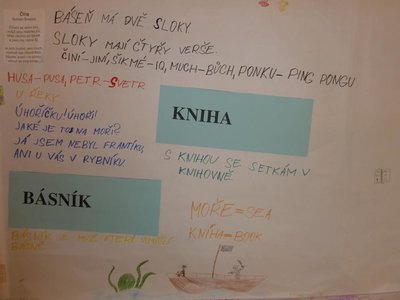 Čína
BÁSEŇ MÁ DVĚ SLOKY
SLOKY MAJÍ ČTYŘY VERŠE.
ČINÍ-JINÍ, ŠIKMÉ-IQ, MUCH-BŮCH, PONKU-PING PONGU
HUSA-PUSA, PETR-SVETR
U ŘEKY
ÚHOŘÍČKU! ÚHOŘI!
JAKÉ JE TO NA MOŘI?
JÁ JSEM NEBYL FRANTÍKU,
ANI U VÁS V RYBNÍKU.
KNIHA
S KNIHOU SE SETKÁM V
KNIHOVNĚ
BÁSNÍK
BÁSNÍK JE MUŽ KTERÝ
BÁSNĚ
MOŘE=SEA
KNIHA=BOOK